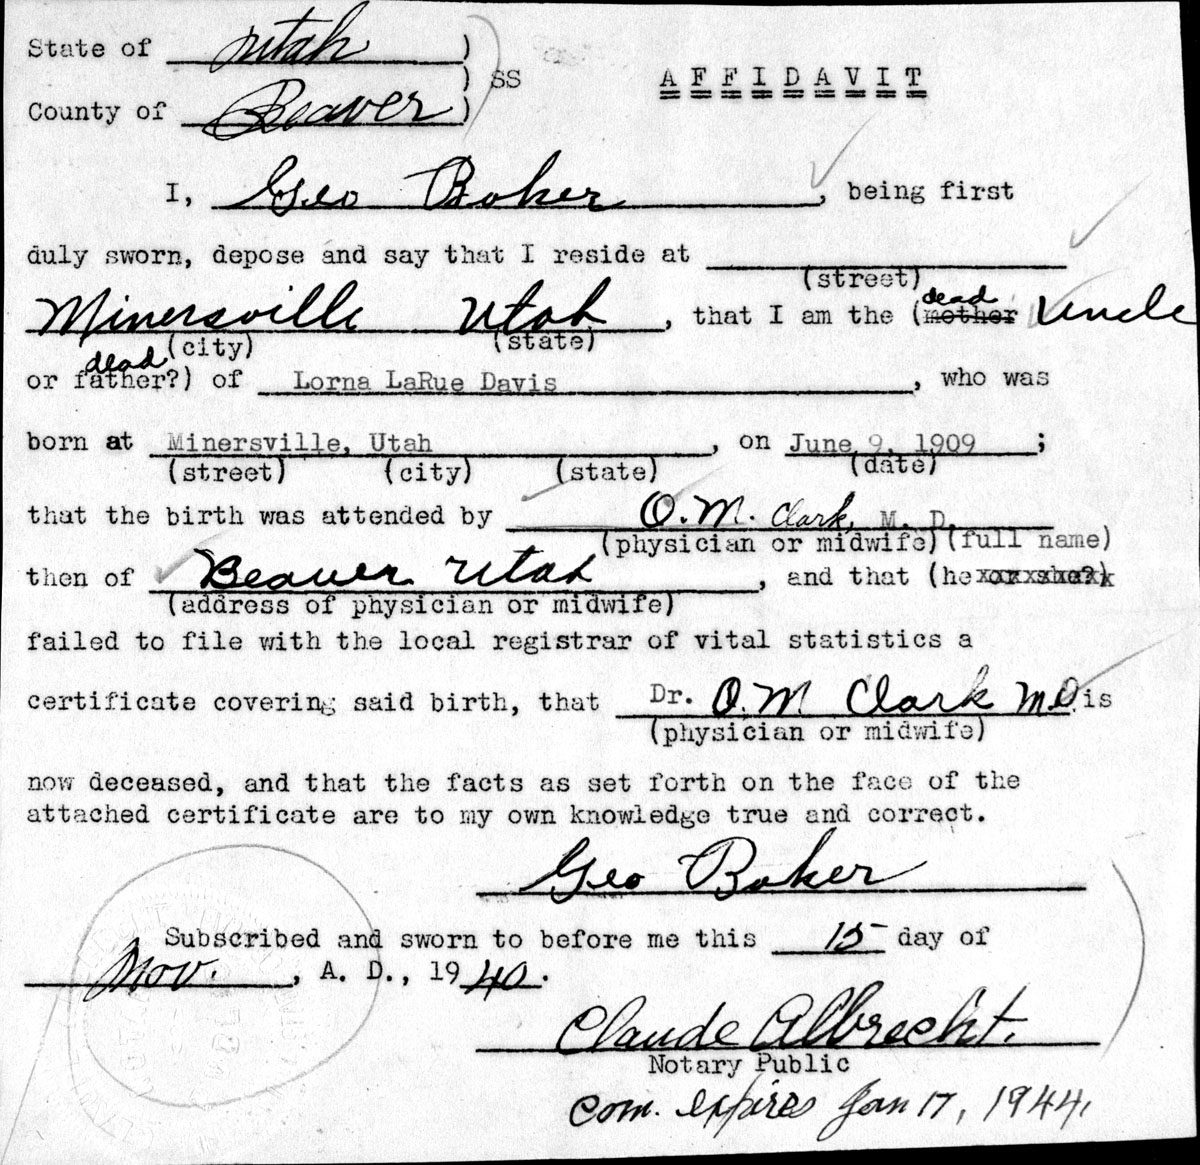 State of Utah )
) SS
AFFIDAVIT
County of Beaver )
I, Geo Baker, being first
duly sworn, depose and say that I reside at
(street)
dead
Minersville Utah, that I am the (mother Uncle
(city) (state)
dead
or father?) of Lorna LaRue Davis, who was
born at Minersville, Utah, on June 9, 1909;
(street) (city) (state) (date)
that the birth was attended by O.M. Clark, M. D.
(physician or midwife) (full name)
then of Beaver Utah, and that (he or she?)
(address of physician or midwife)
failed to file with the local registrar of vital statistics a
certificate covering said birth, that Dr. O.M Clark M.D. is
(physician or midwife)
now deceased, and that the facts as set forth on the face of the
attached certificate are to my own knowledge true and correct.
Geo Baker
Subscribed and sworn to before me this 15 day of
Nov., A. D., 1940.
Claude Albrecht.
Notary Public
Com. expires Jan 17, 1944.